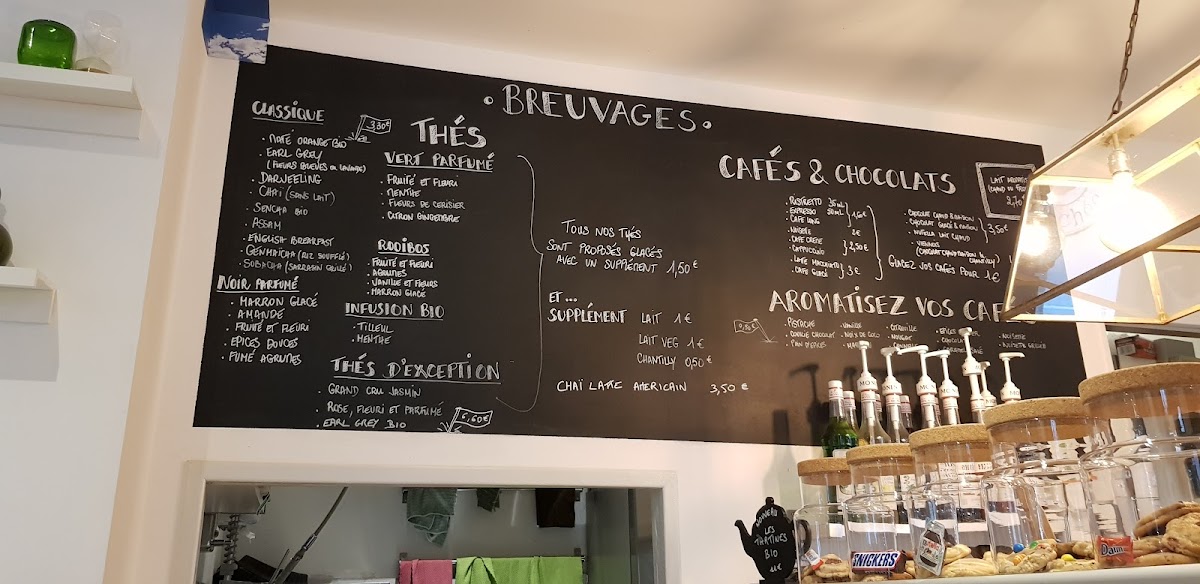 • BREUVAGES •
CLASSIQUE
3,80€
• MATÉ ORANGE BIO
• EARL GREY
(FLEURS BLEUES OU LAVANDE)
• DARJEELING
• CHAÏ (SANS LAIT)
• SENCHA BIO
• ASSAM
• ENGLISH BREAKFAST
• GENMAÏCHA (RIZ SOUFFLÉ)
• SOBACHA (SARRASIN GRILLÉ)
NOIR PARFUMÉ
• MARRON GLACÉ
• AMANDE
• FRUITÉ ET FLEURI
• EPICES DOUCES
• FUMÉ AGRUMES
THÉS
VERT PARFUMÉ
• FRUITÉ ET FLEURI
• MENTHE
• FLEURS DE CERISIER
• CITRON GINGEMBRE
ROOÏBOS
• FRUITÉ ET FLEURI
• AGRUMES
• VANILLE ET FLEURS
• MARRON GLACÉ
INFUSION BIO
• TILLEUL
• MENTHE
THÉS D'EXCEPTION
• GRAND CRU JASMIN
• ROSE, FLEURI ET PARFUMÉ
• EARL GREY BIO
TOUS NOS THÉS
SONT PROPOSÉS GLACÉS
AVEC UN SUPPLÉMENT 1,50€
ET...
SUPPLÉMENT LAIT 1€
LAIT VEG 1€
CHANTILLY 0,50€
CHAÏ LATTE AMERICAIN 3,50€
CAFÉS & CHOCOLATS
• RISTRETTO 35ML
• ESPRESSO 50ML
• CAFE LONG
1,5€
• NOISETTE 2€
• CAFE CREME
• CAPPUCCINO
2,50€
• LATTE MACCHIATO
• CAFE GLACÉ
3€
• CHOCOLAT CHAUD MAISON
• CHOCOLAT GLACÉ MAISON
• NUTELLA LAIT CHAUD
• VIENNOIS
3,50€
GLACEZ VOS CAFÉS POUR 1€
LAIT
2,70
AROMATISEZ VOS CAFÉS
0,50€
• PISTACHE
• COOKIE CHOCOLAT
• PAIN D'EPICES
• VANILLE
• NOIX DE COCO
• CITROUILLE
• NOUGAT
• NOISETTE
LES
TARTINES
BIO
SNICKERS
Daim